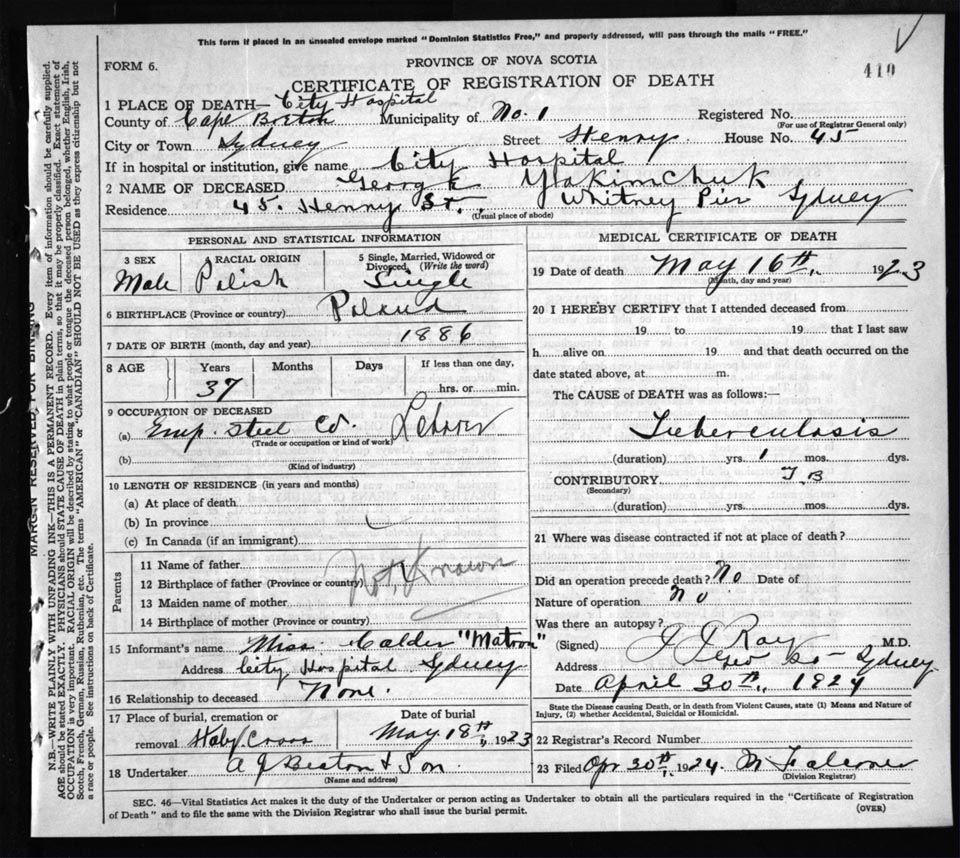 This form if placed in an unsealed envelope marked "Dominion Statistics Free," and properly addressed, will pass through the mails "FREE."
FORM 6.
PROVINCE OF NOVA SCOTIA
410
CERTIFICATE OF REGISTRATION OF DEATH
1 PLACE OF DEATH— City Hospital
County of Cape Breton Municipality of No. 1 Registered No.
(For use of Registrar General only)
City or Town Sydney Street Henry House No. 45
If in hospital or institution, give name City Hospital
2 NAME OF DECEASED George Yakimchuk
Residence 45. Henry St. Whitney Pier Sydney
(Usual place of abode)
PERSONAL AND STATISTICAL INFORMATION
3 SEX RACIAL ORIGIN 5 Single, Married, Widowed or Divorced (Write the word)
Male Polish Single
6 BIRTHPLACE (Province or country) Poland
7 DATE OF BIRTH (month, day and year) 1886
8 AGE Years Months Days If less than one day,
37 hrs. or min.
9 OCCUPATION OF DECEASED
(a) Emp. Steel Co. Laborer
(Trade or occupation or kind of work)
(b)
(Kind of industry)
10 LENGTH OF RESIDENCE (in years and months)
(a) At place of death
(b) In province
(c) In Canada (if an immigrant)
Parents
11 Name of father
12 Birthplace of father (Province or country) Not Known
13 Maiden name of mother
14 Birthplace of mother (Province or country)
15 Informant's name Miss Calder "Matron"
Address City Hospital Sydney
16 Relationship to deceased None.
17 Place of burial, cremation or Date of burial
removal Holy Cross May 18th, 1923
18 Undertaker A J Beaton & Son
(Name and address)
MEDICAL CERTIFICATE OF DEATH
19 Date of death May 16th, 1923
(Month, day and year)
20 I HEREBY CERTIFY that I attended deceased from
19 to 19 that I last saw
h alive on 19 and that death occurred on the
date stated above, at m.
The CAUSE of DEATH was as follows:—
Tuberculosis
(duration) yrs. 1 mos. dys.
CONTRIBUTORY T.B
(Secondary)
(duration) yrs. mos. dys.
21 Where was disease contracted if not at place of death?
Did an operation precede death? No Date of
Nature of operation No
Was there an autopsy?
(Signed) J J Roy M.D.
Address Sydney
Date April 30th, 1924
State the Disease causing Death, or in death from Violent Causes, state (1) Means and Nature of
Injury, (2) whether Accidental, Suicidal or Homicidal.
22 Registrar's Record Number
23 Filed Apr 30th, 1924.
(Division Registrar)
SEC. 46—Vital Statistics Act makes it the duty of the Undertaker or person acting as Undertaker to obtain all the particulars required in the "Certificate of Registration
of Death" and to file the same with the Division Registrar who shall issue the burial permit.
(OVER)
MARGIN RESERVED FOR BINDING
N.B.—WRITE PLAINLY WITH UNFADING INK—THIS IS A PERMANENT RECORD. Every item of information should be carefully supplied.
AGE should be stated EXACTLY. PHYSICIANS should STATE CAUSE OF DEATH in plain terms, so that it may be properly classified. Exact statement of
OCCUPATION is very important. RACIAL ORIGIN will be described by stating to what people or tongue the deceased person belonged, whether English, Irish,
Scotch, French, German, Russian, Ruthenian, etc. The terms "AMERICAN" or "CANADIAN" SHOULD NOT BE USED as they express citizenship but not
a race or people. See instructions on back of Certificate.